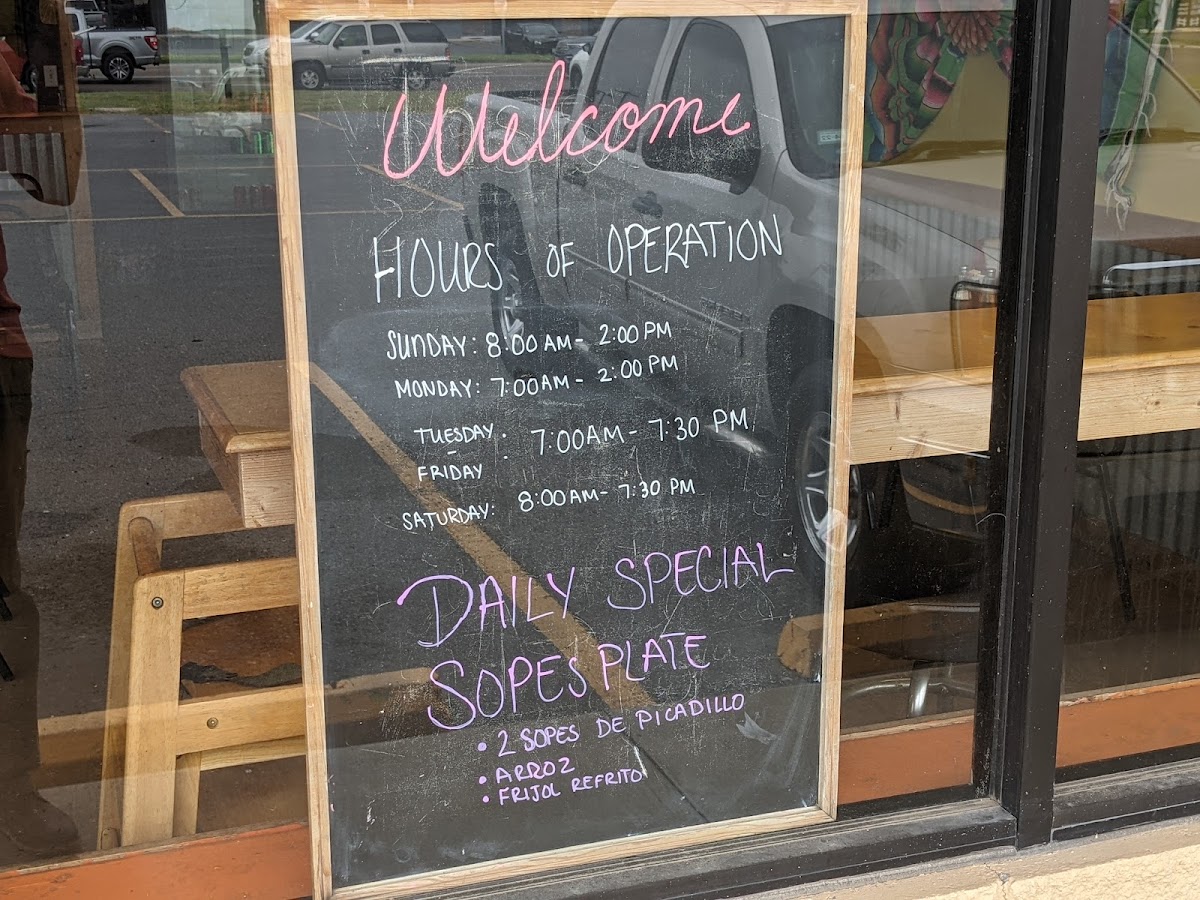 Welcome
HOURS OF OPERATION
SUNDAY: 8:00 AM - 2:00 PM
MONDAY: 7:00AM - 2:00 PM
TUESDAY - FRIDAY : 7:00AM - 7:30 PM
SATURDAY: 8:00AM- 7:30 PM
DAILY SPECIAL
SOPES PLATE
• 2 SOPES DE PICADILLO
• ARROZ
• FRIJOL REFRITO